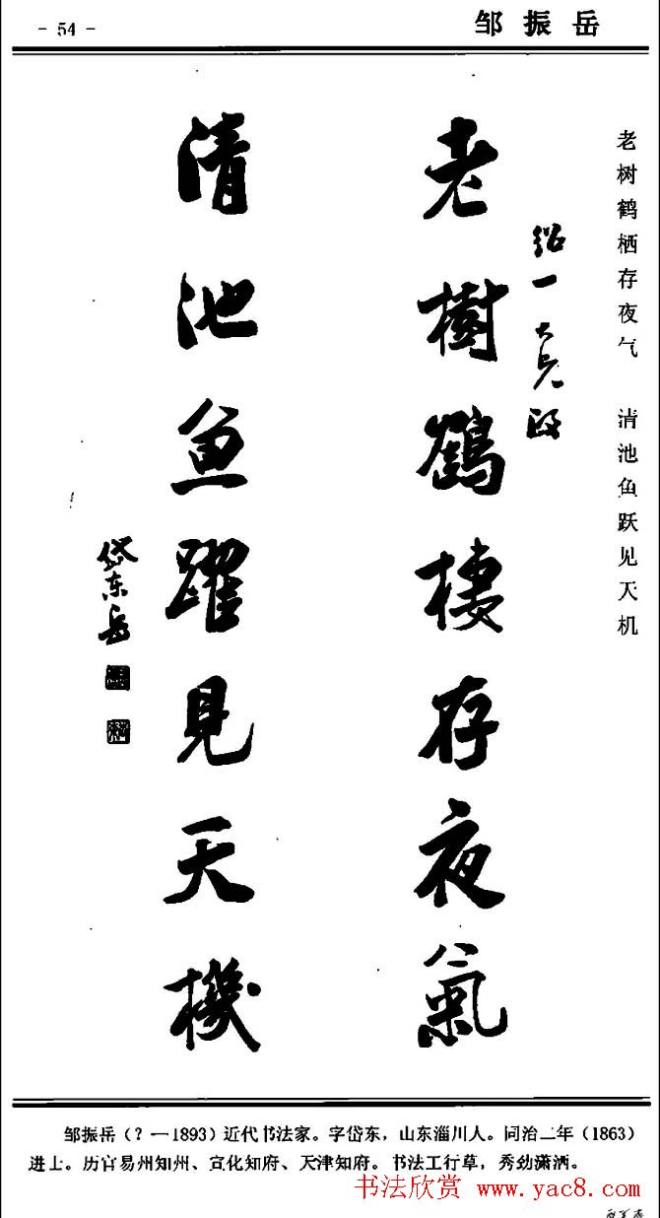 - 54 -
邹振岳
老树鹤栖存夜气 清池鱼跃见天机
绍一大兄政
老樹鶴棲存夜氣
清池魚躍見天機
岱东岳
邹振岳(?—1893)近代书法家。字岱东,山东淄川人。同治二年(1863)
进士。历官易州知州、宣化知府、天津知府。书法工行草,秀劲潇洒。
书法欣赏 www.yac8.com